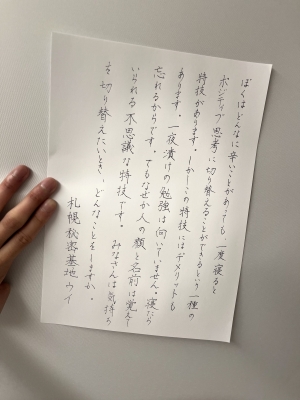 ぼくはどんなに辛いことがあっても、一度寝ると
ポジティブ思考に切り替えることができるという一種の
特技があります。しかしこの特技にはデメリットも
あります。一夜漬けの勉強は向いていません。寝たら
忘れるからです。でもなぜか人の顔と名前は覚えて
いられる不思議な特技です。みなさんは気持ち
を切り替えたいとき、どんなことをしますか。
札幌秘密基地 ウイ